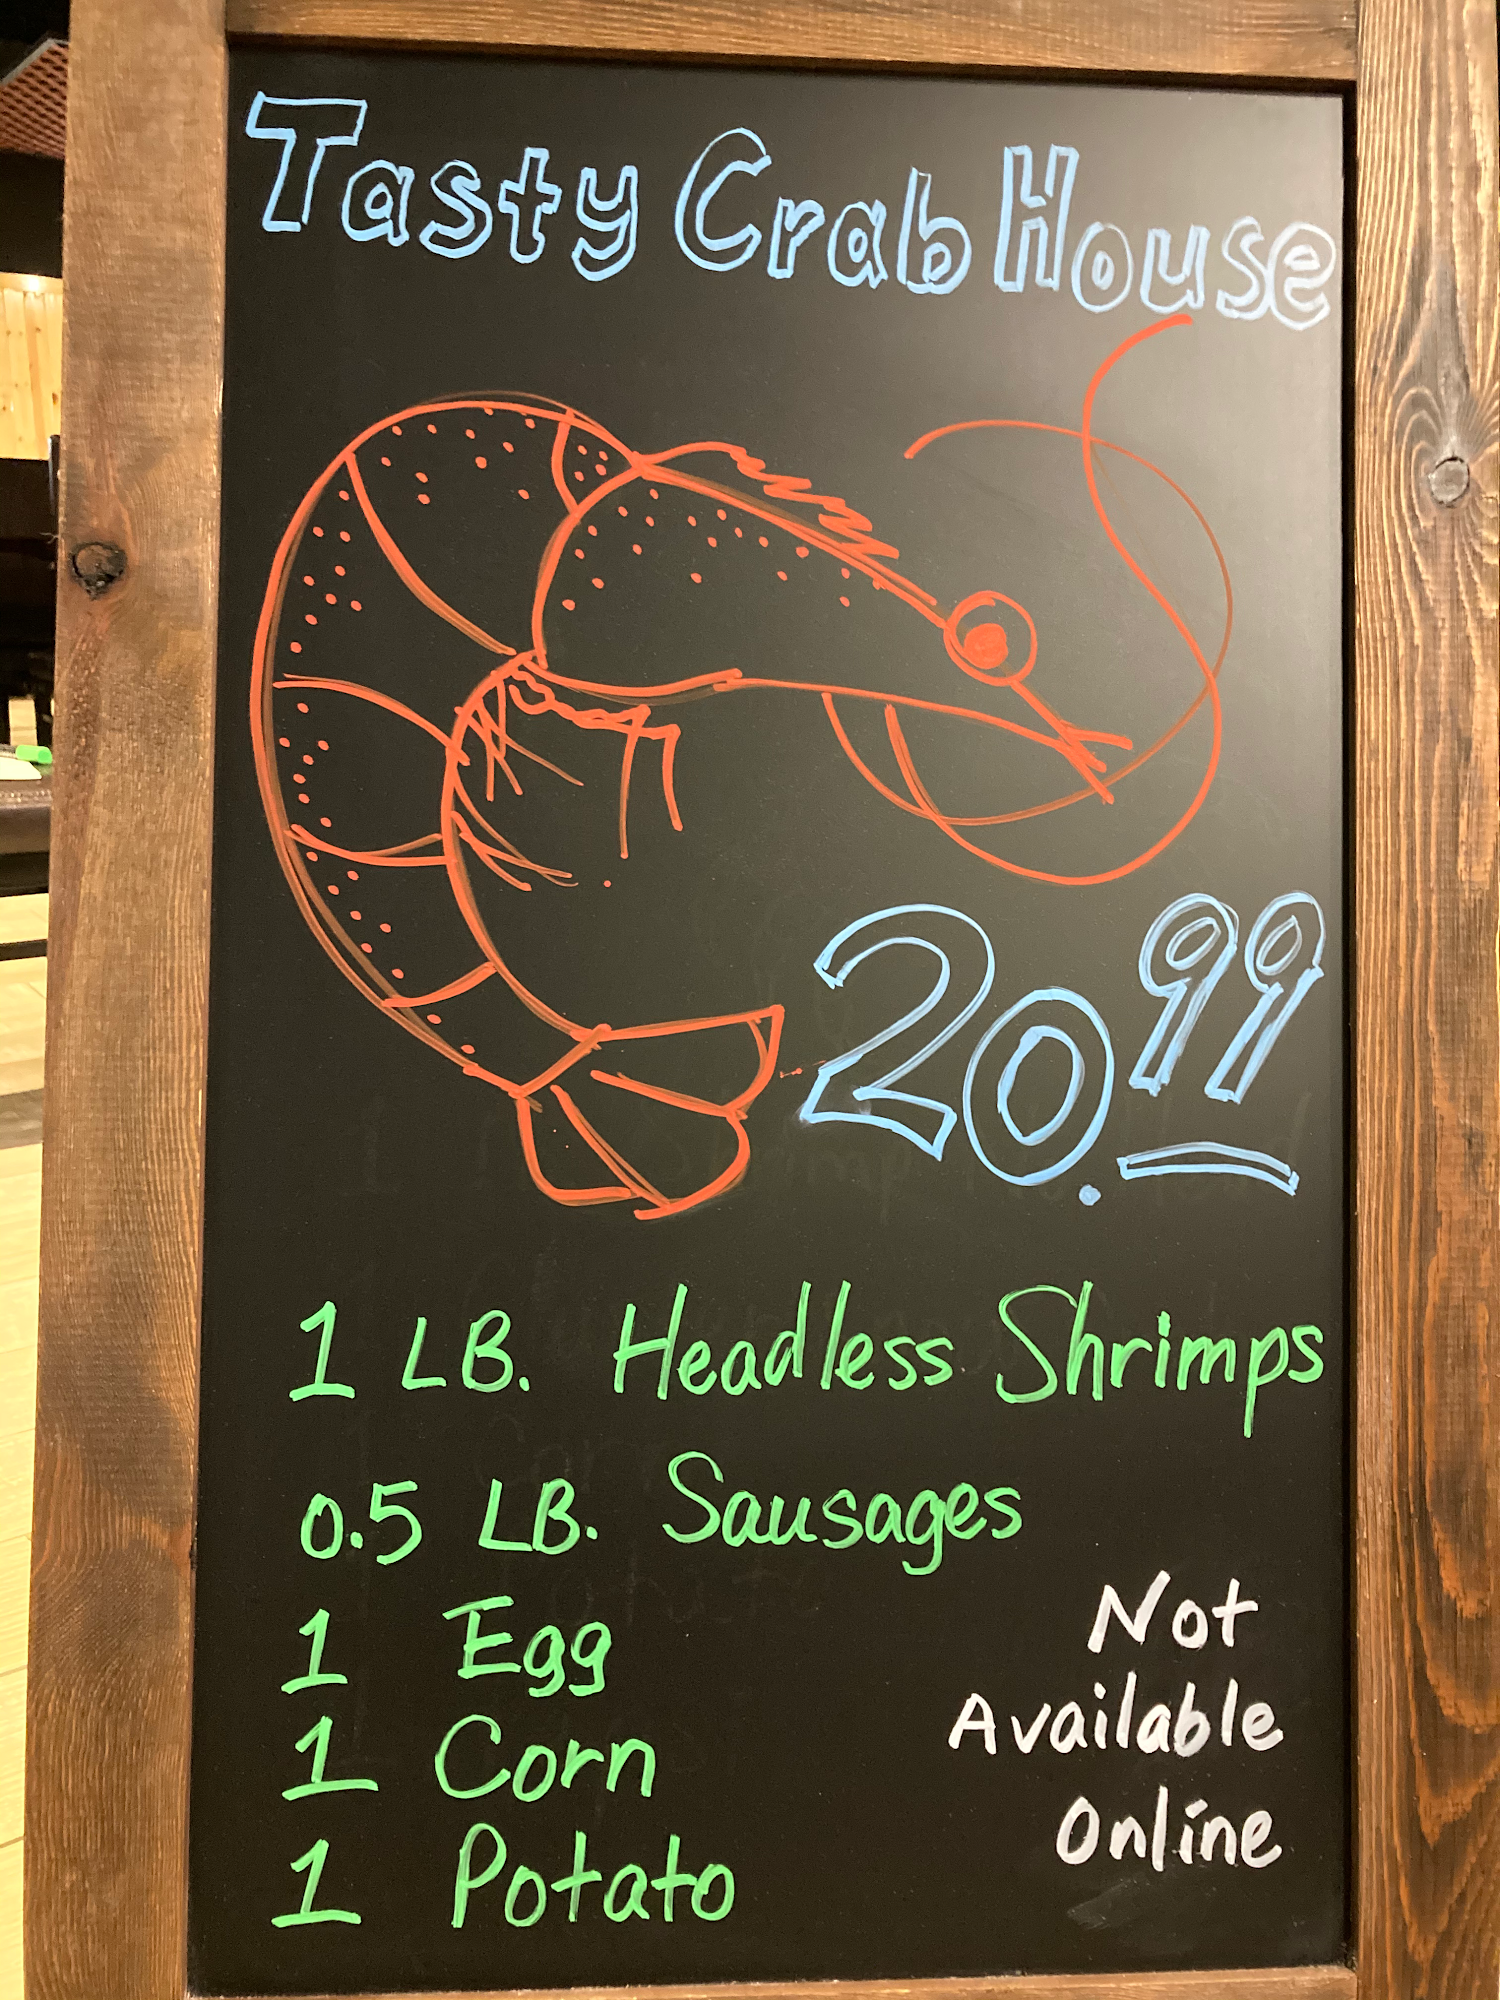 Tasty Crab House
20.99
1 LB. Headless Shrimps
0.5 LB. Sausages
1 Egg
1 Corn
1 Potato
Not
Available
Online